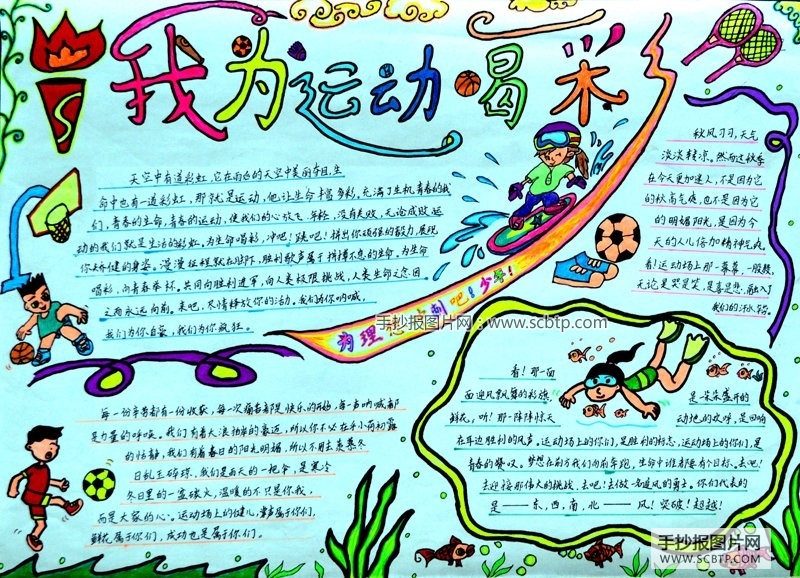 我为运动喝彩
天空中有道彩虹,它在雨后的天空中美丽夺目,生
命中也有一道彩虹,那就是运动,他让生命丰富多彩,充满了生机,青春的我
们,青春的生命,青春的运动,使我们的心放飞,年轻,没有失败,无论成败,运
动的我们就是生活的彩虹,为生命喝彩,冲吧!跳吧!拼出你顽强的毅力,展现
你矫健的身姿。漫漫征程就在脚下,胜利歌声属于拼搏不息的生命,为生命
喝彩,向青春举杯。共同向胜利进军,向人类极限挑战,人类生命之念因
之而永远向前。来吧,尽情释放你的活力。我们为你呐喊,
我们为你自豪,我们为你疯狂。
为理想冲刺吧!少年!
秋风习习,天气
淡淡转凉。然而这秋季
在今天更加迷人,不是因为它
的秋高气爽,也不是因为它
的明媚阳光,是因为今
天的人儿倍加精神气爽,
看!运动场上那一幕幕,一股股,
无论是哭是笑,是喜是悲,融入了
我们的汗水
手抄报图片网:www.scbtp.com
每一份辛苦都有一份收获,每一次痛苦都是快乐的开始,每一声呐喊都
是力量的呼唤。我们有着大浪拍岸的豪迈,所以你不必在乎小雨初露
的恬静,我们有着春日的阳光明媚,所以不用去羡慕冬
日乱玉碎琼,我们是雨天的一把伞,是寒冷
冬日里的一盆碳火,温暖的不只是你我,
而是大家的心。运动场上的健儿,掌声属于你们,
鲜花属于你们,成功也是属于你们。
看!那一面
面迎风飘舞的彩旗
是一朵朵盛开的
鲜花,听!那一阵阵惊天
动地的欢呼,是回响
在耳边胜利的风声。运动场上的你们,是胜利的标志,运动场上的你们,是
青春的赞叹,梦想在前方我们向前奔跑,生命中谁都要有个目标。去吧!
去迎接那伟大的挑战,去吧!去做一名追风的勇士。你们代表的
是——东,西,南,北——风!突破!超越!
手抄报图片网
WWW.SCBTP.COM